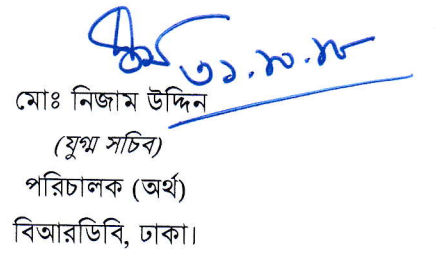 ৩১.১০.১৮
মোঃ নিজাম উদ্দিন
(যুগ্ম সচিব)
পরিচালক (অর্থ)
বিআরডিবি, ঢাকা।